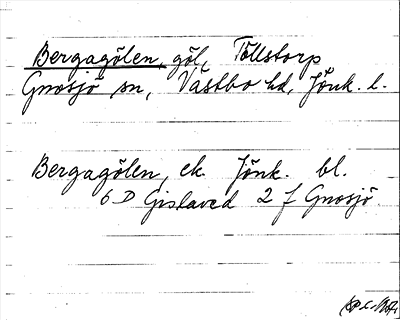 Bergagölen, göl, Töllstorp
Gnosjö sn, Västbo hd, Jönk. l.
Bergagölen, ek. Jönk. bl.
6 D Gislaved 2 f Gnosjö